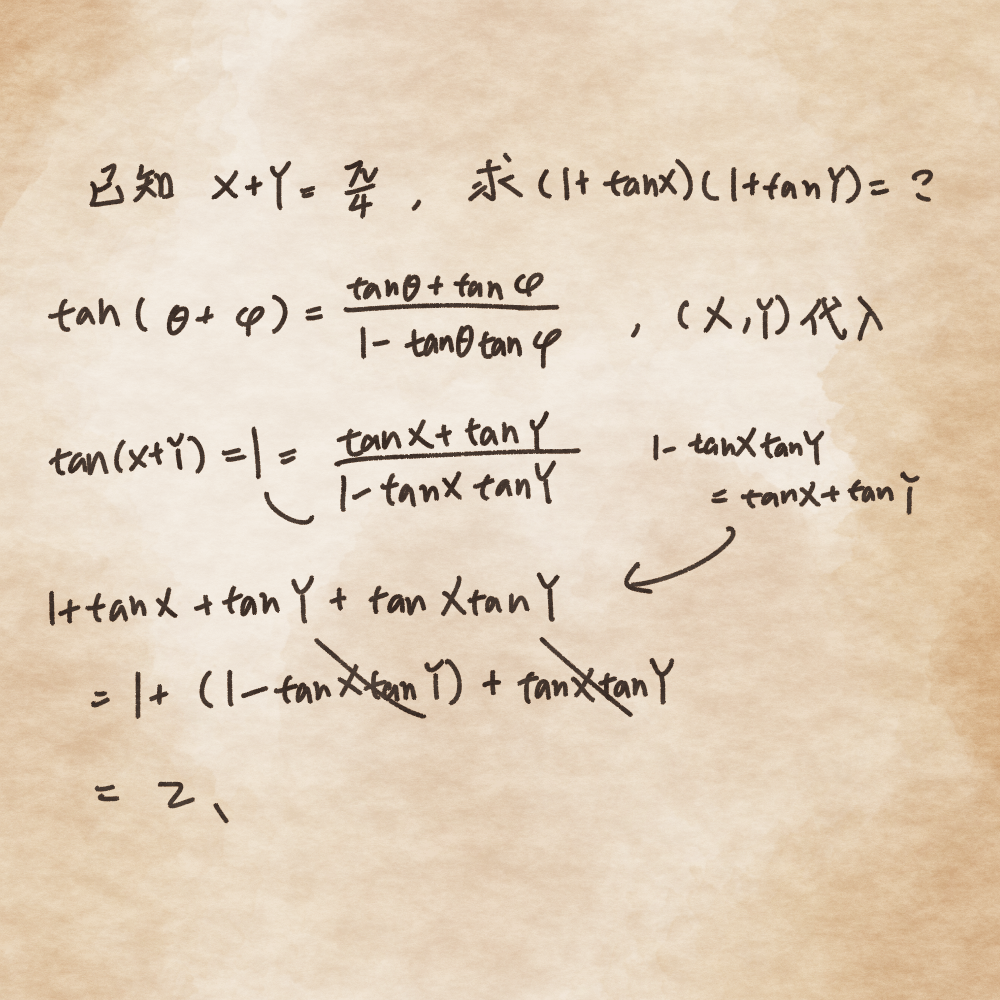 已知 X+Y = π/4 , 求 (1+ tanX)(1+tanY) = ?
tan( θ+ φ) = (tanθ + tan φ)/(1- tanθ tan φ) , (X,Y) 代入
tan(X+Y) = 1 = (tanX + tanY)/(1- tanX tanY)
1- tanX tanY
= tanX + tan Y
1+tanX + tan Y + tan X tan Y
= 1+ (1- tan X tan Y) + tanX tanY
= 2、